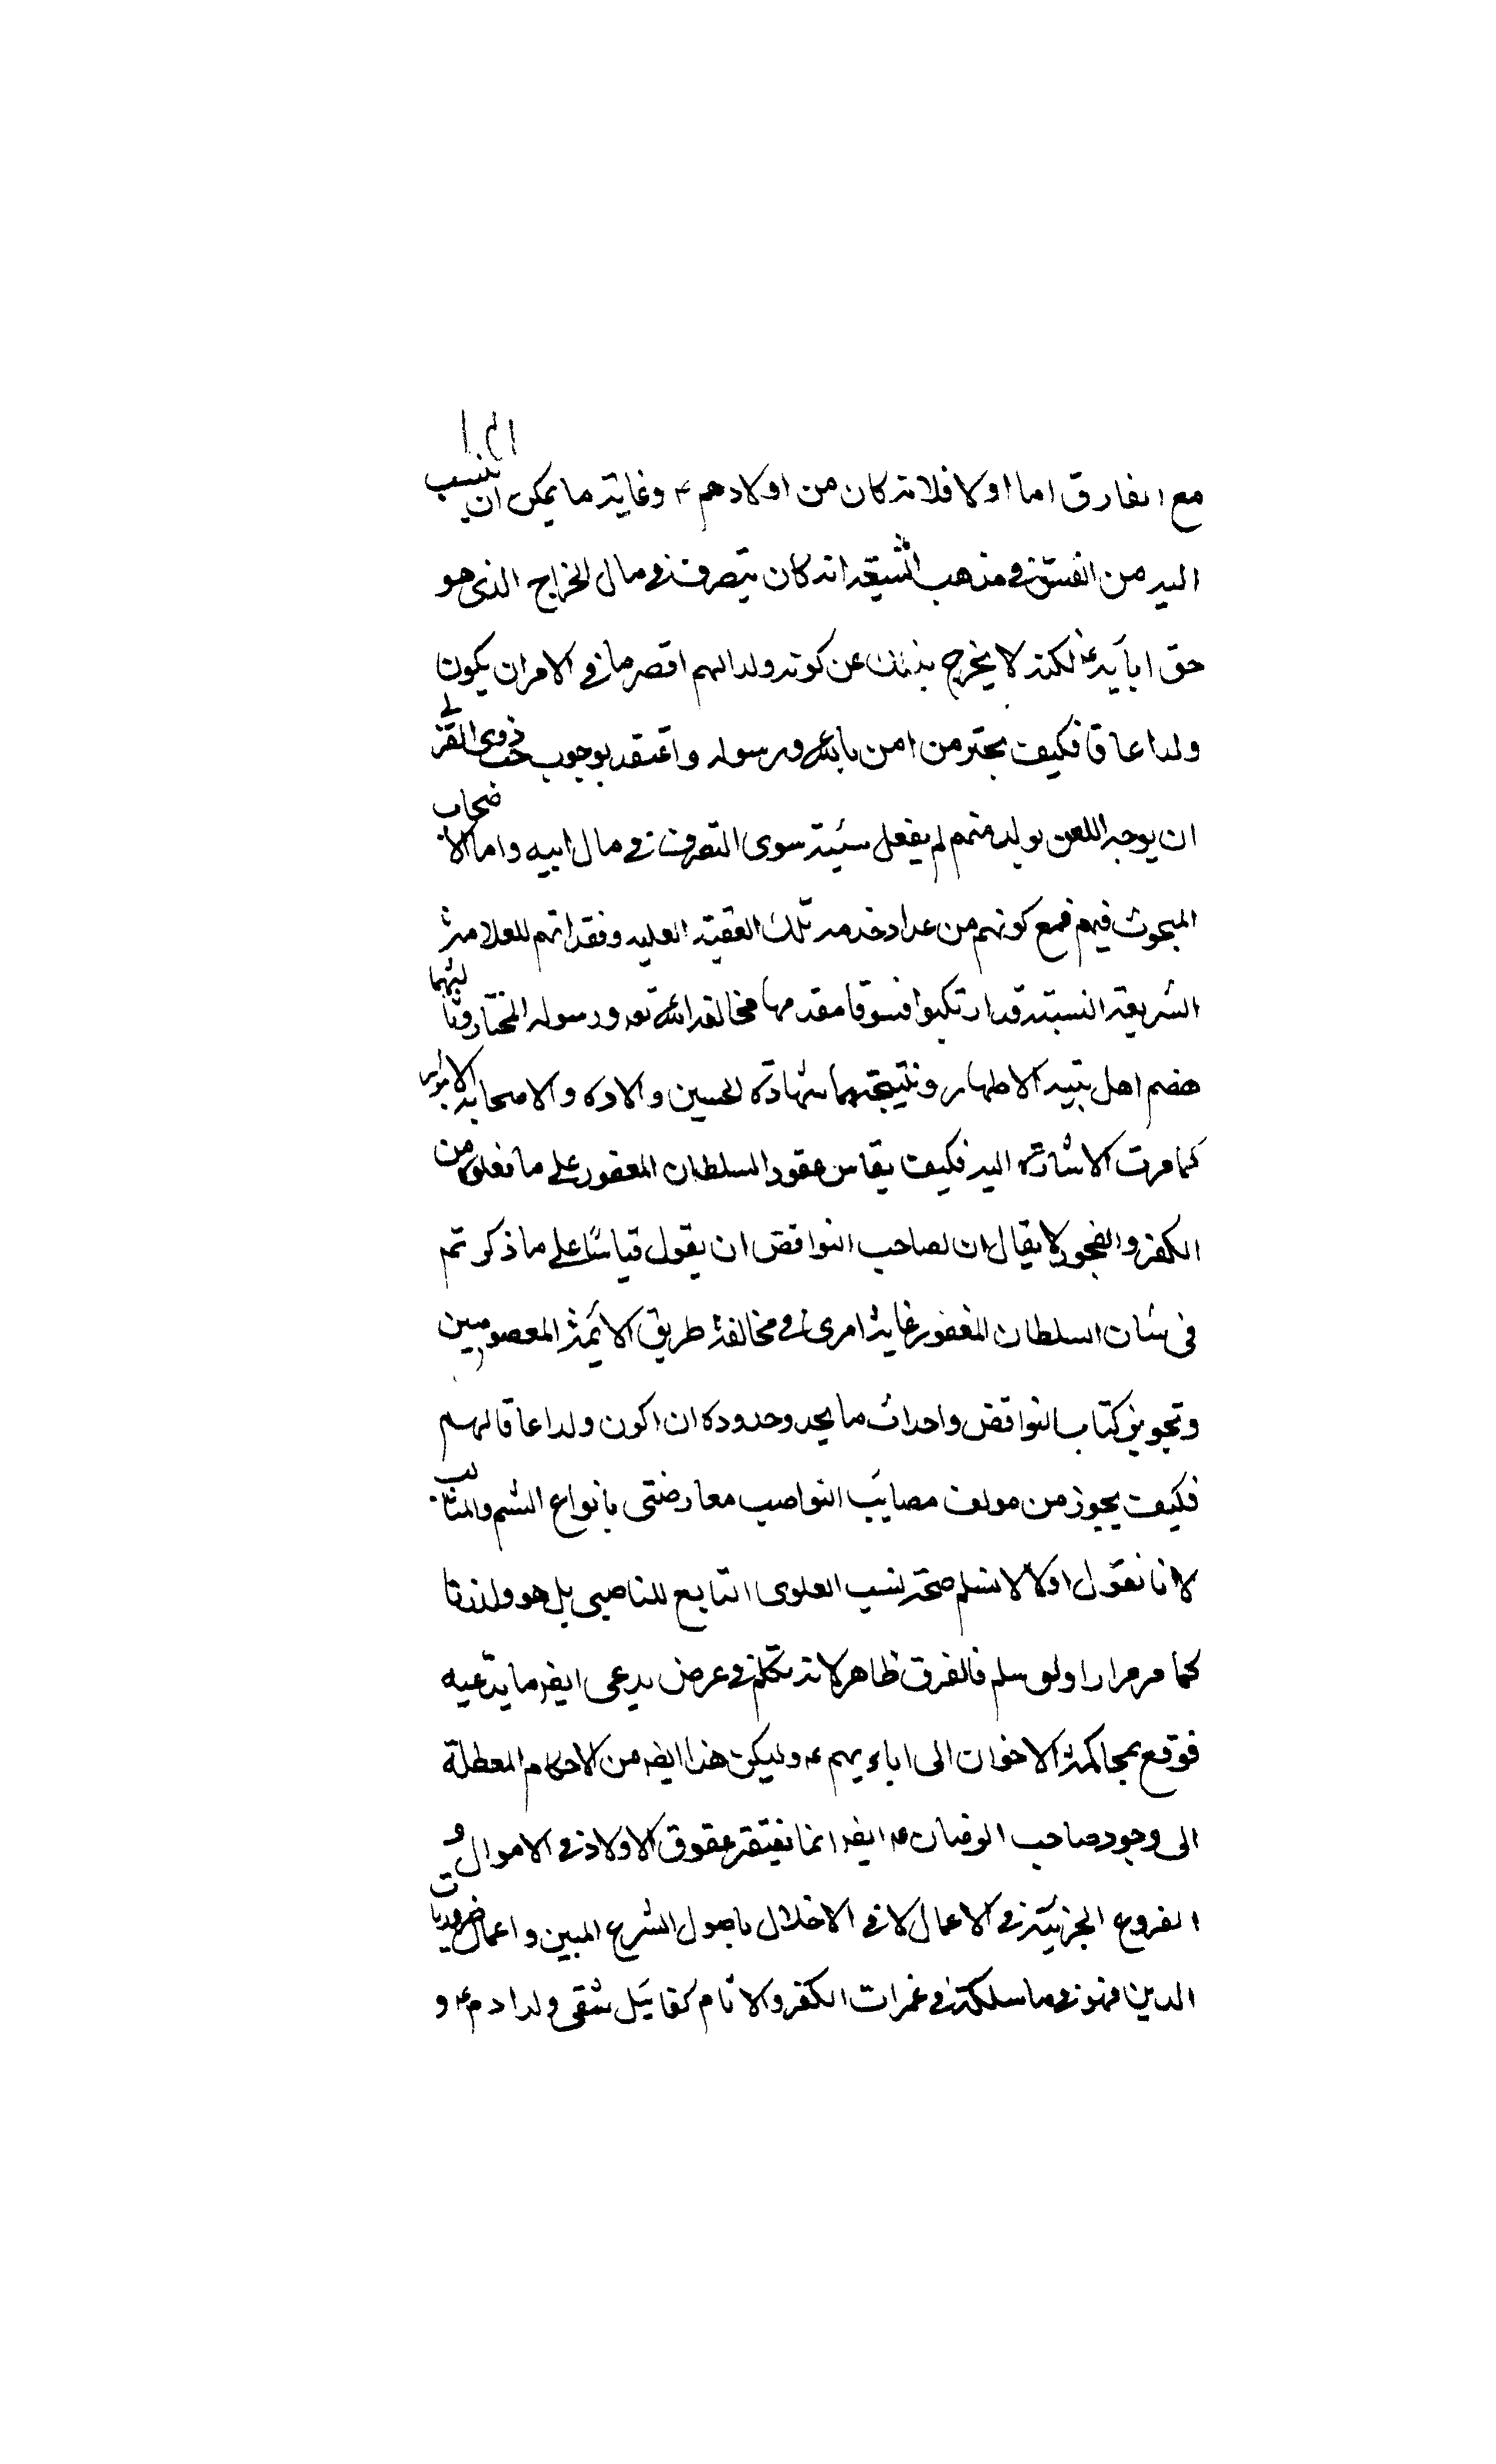 مع الفارق اما اولا فلانه كان من اولادهم ع وغاية ما يمكن ان ينسب
اليه من الفسق في مذهب الشيعة انه كان يتصرف في مال الخراج الذي هو
حق ابآئه ع لكنه لا يخرج بذلك عن كونه ولدا لهم اقصر ما في الامر ان يكون
ولدا عاقا فكيف يجتر من امن بالله ورسوله واعتقد بوجوب حب ذوي القربى
ان يوجه اللعن بولد منهم لم يفعل سيئة سوى التصرف في مال ابيه واما الاصحاب
المبحوث فيهم فمع كونهم من عداد خدمه تلك العقبة العليه وفقدانهم للعلامة
الشريفة النسبية قد ارتكبوا فسوقا مقدمها مخالفة الله تعه ورسوله المختار وثالثهما
هضم اهل بيته الاطهار ونتيجتهما شهادة الحسين والاده والاصحابه الابرار
كما مرت الاشارة اليه فكيف يقاس عقود السلطان المغفور على ما فعلوه من
الكفر والفجور لا يقال ان لصاحب النواقض ان يقول قياسًا على ما ذكرتم
في شان السلطان المغفور غاية امري في مخالفة طريق الائمة المعصومين
وتجويز كتاب النواقض واحداث ما يحد وحدوده ان اكون ولدا عاقا لهم
فكيف يجوز من مولف مصائب النواصب معارضتي بانواع الشتم والمثالب
لانا نقول اولا لا نسلم صحة نسب العلوي التابع للناصبي بل هو ولد زنا
كما مر مرارا ولو سلم فالفرق ظاهر لانه تكلم في عرض يدعى ايضه ما يدعيه
فوقع بمحاكمة الاخوان الى اباءيهم ع وليكن هذا ايضه من الاحكام المعطلة
الى وجود صاحب الزمان ع ايضه انما نفتقر عقوق الاولاد في الاموال و
الفروع الجزئية في الاعمال لا في الاخلال باصول الشرع المبين واعمال ضروريات
الدين فهو في ما سلكه في غمرات الكفر والاثام كقابيل شقي ولد ادم ع و